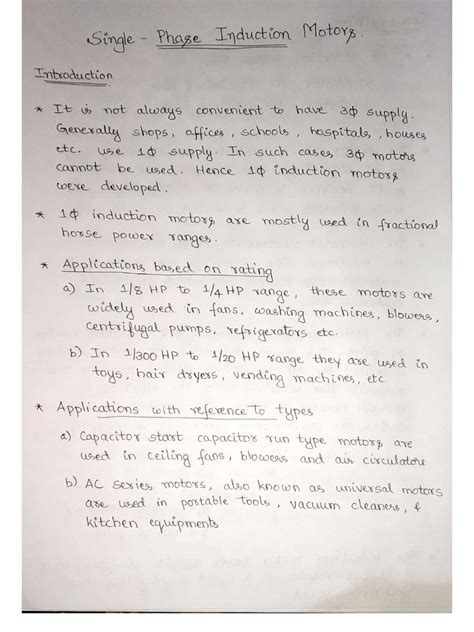 Single - Phase Induction Motors.
Introduction
* It is not always convenient to have 3Φ supply.
Generally shops, offices, schools, hospitals, houses
etc. use 1Φ supply. In such cases 3Φ motors
cannot be used. Hence 1Φ induction motors
were developed.
* 1Φ induction motors are mostly used in fractional
horse power ranges.
* Applications based on rating
a) In 1/8 HP to 1/4 HP range, these motors are
widely used in fans, washing machines, blowers,
centrifugal pumps, refrigerators etc.
b) In 1/300 HP to 1/20 HP range they are used in
toys, hair dryers, vending machines, etc.
* Applications with reference to types
a) Capacitor start capacitor run type motors are
used in ceiling fans, blowers and air circulators
b) AC series motors, also known as universal motors
are used in portable tools, vacuum cleaners, &
kitchen equipments